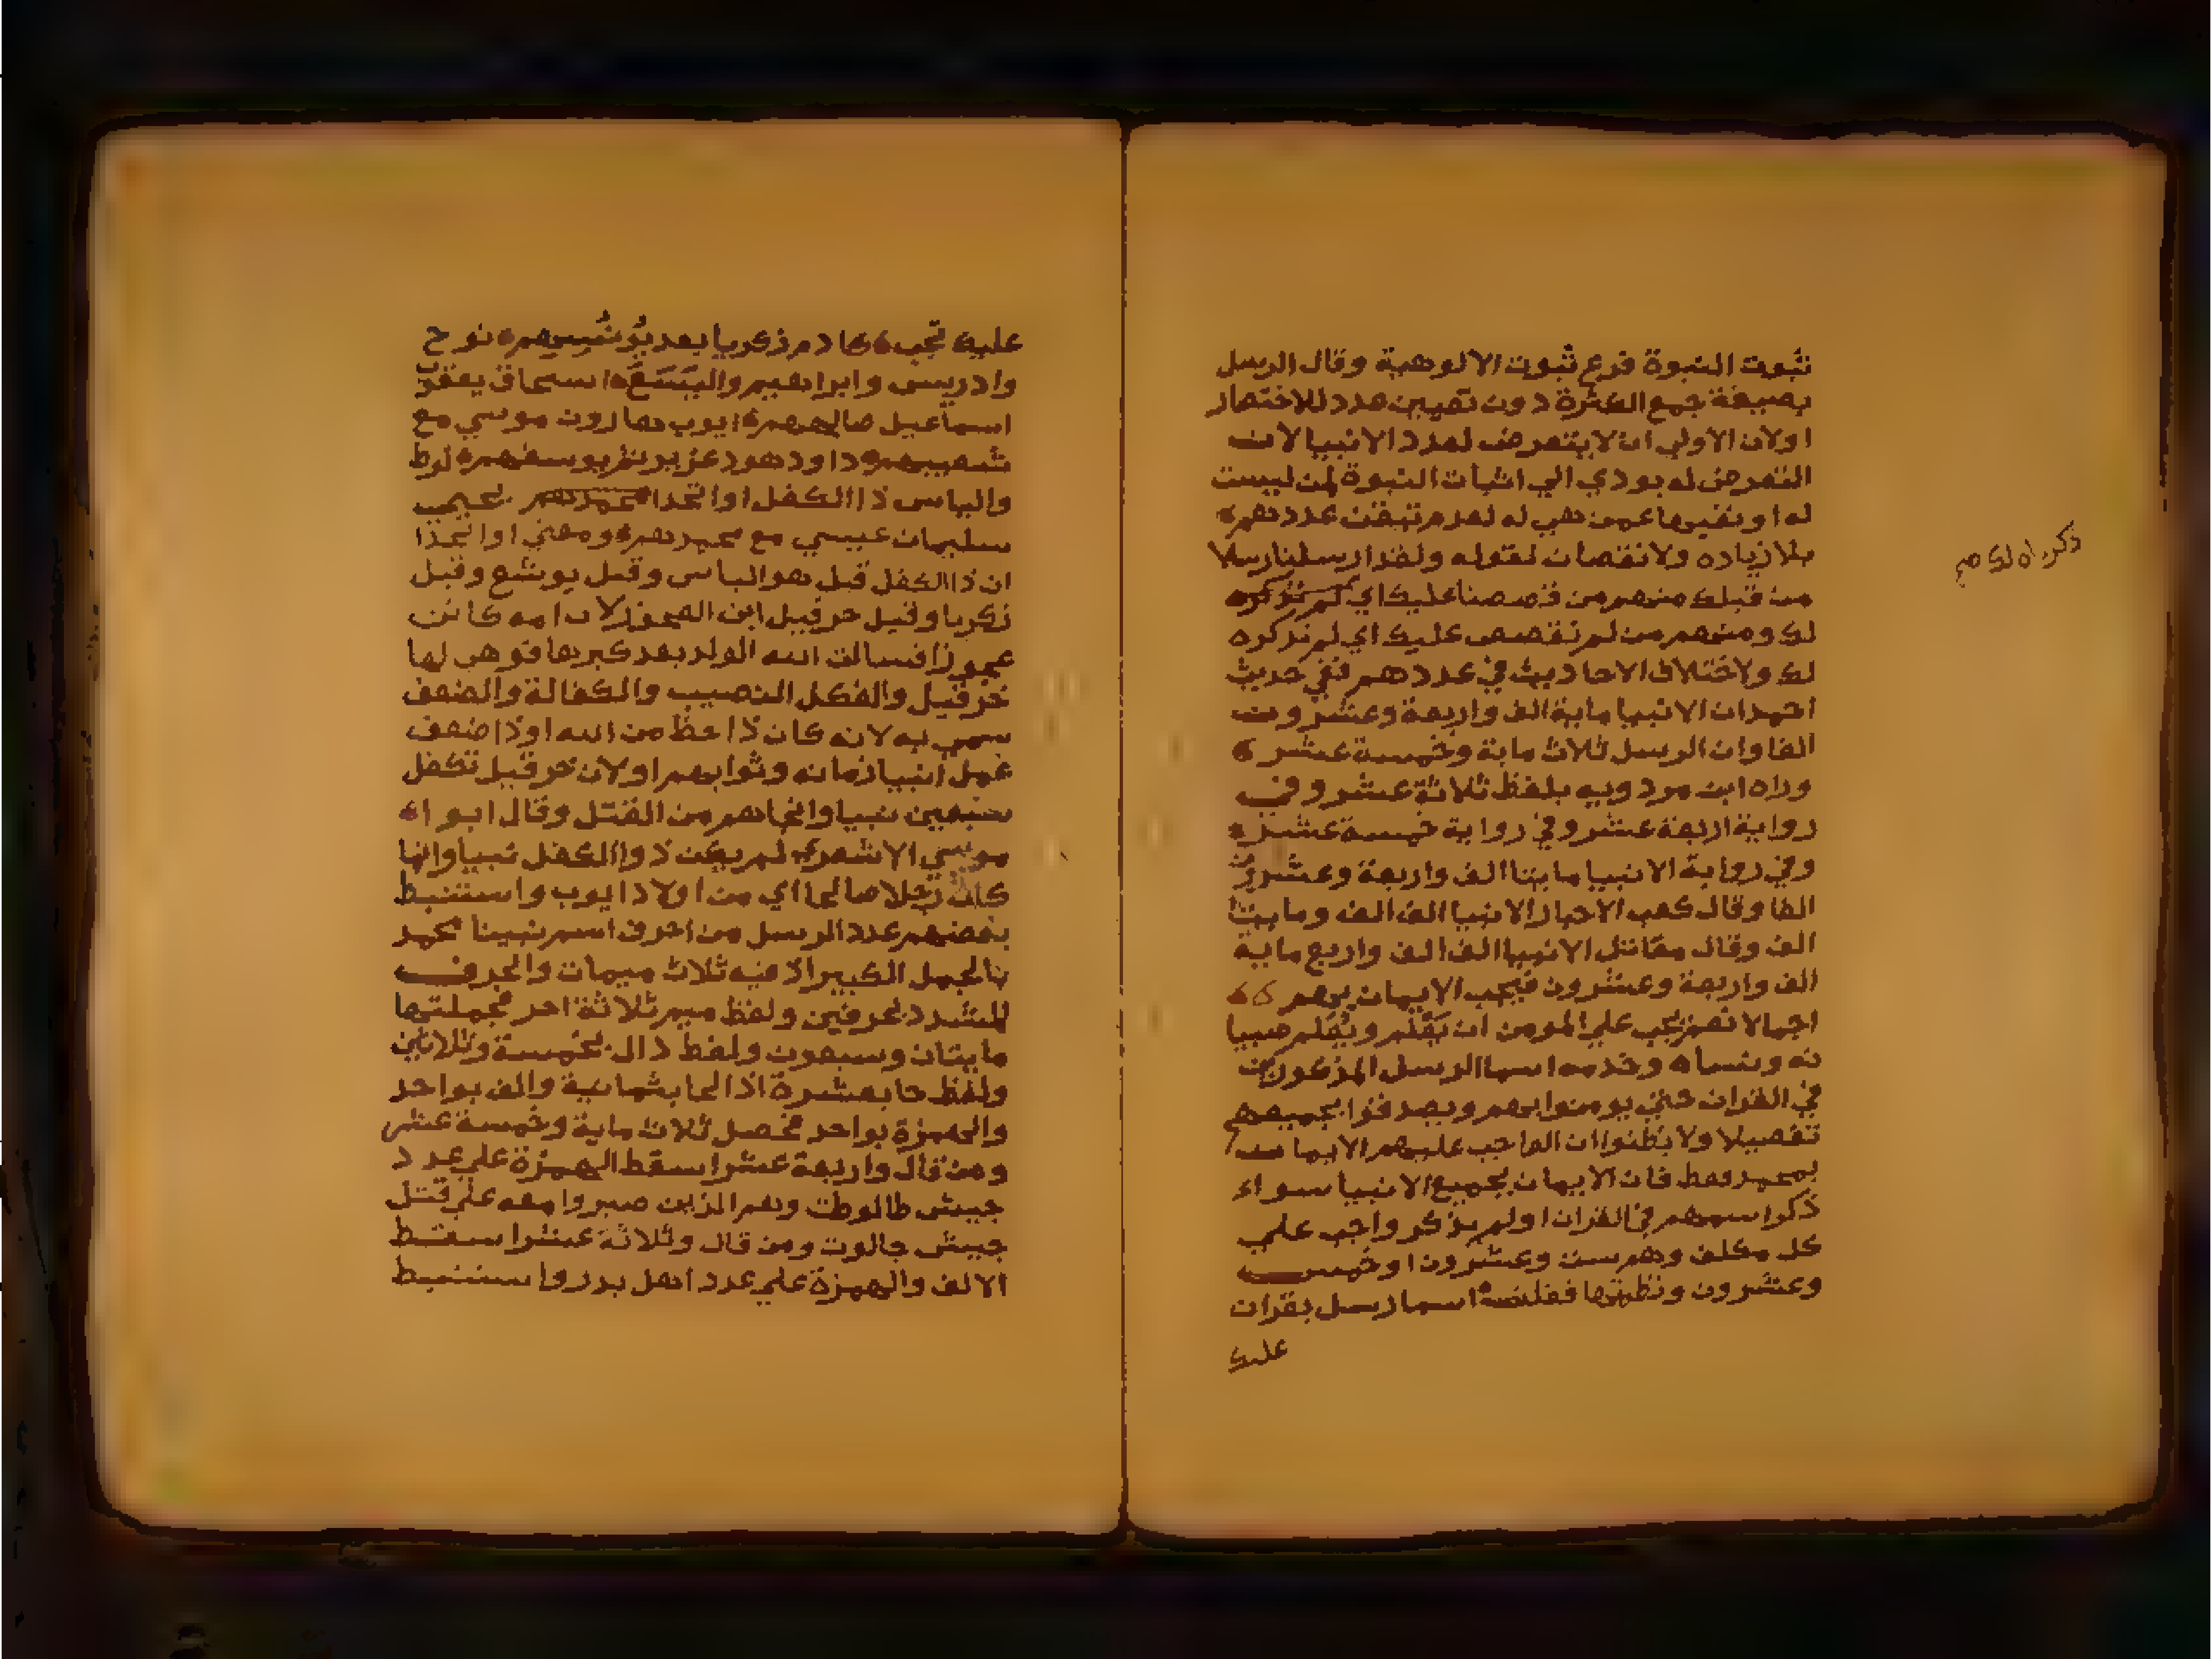 ثبوت النبوة فرع ثبوت الالوهية وقال الرسل
بصيغة جمع الكثرة دون تعيين عدد للاختصار
اولان الاولي ان لا يتعرض لعدد الانبيا لان
التعرض له يودي الي اثبات النبوة لمن ليست
له او نفيها عمن هي له لعدم تيقن عددهم
بلا زياده ولا نقصان لقوله ولقد ارسلنا رسلا
من قبلك منهم من قصصنا عليك اي
لك ومنهم من لم نقصص عليك اي لم نذكره
لك ولاختلاف الاحاديث في عددهم ففي حديث
احمد ان الانبيا ماية الف واربعة وعشرون
الفا وان الرسل ثلاث ماية وخمسة عشر
وراه ابن مردويه بلفظ ثلاثة عشر وفي
رواية اربعة عشر وفي رواية خمسة عشر
وفي رواية الانبيا مايتا الف واربعة وعشرون
الفا وقال كعب الاحبار الانبيا الف الف ومايتا
الف وقال مقاتل الانبيا الف الف واربع ماية
الف واربعة وعشرون فيجب الايمان بهم
اجمالا نعم يجب علي المومن ان يَعْلَم ويُعَلم صبيا
نه ونساه وخدمه اسما الرسل المذكورين
في القران حتي يومنوا بهم ويصدقوا بجميعهم
تفصيلا ولا يظنوا ان الواجب عليهم الايمان
بمحمد فقط فان الايمان بجميع الانبيا سواء
ذكر اسمهم في القران او لم يذكر واجب علي
كل مكلف وهم ست وعشرون او خمسة
وعشرون ونظمتها فقلت اسما رسل بقران
عليك
عليك تجب ادم زكريا بعد يونسهم نوح
وادريس وابراهيم واليَسَعَ اسحاق يعقوب
اسماعيل صالحهم ايوب هارون موسي مع
شعيبهم داود هود عزير ثم يوسفهم لوط
والياس ذا الكفل او اتحدا يحيي
سليمان عيسي مع محمدهم ومعني او اتحدا
ان ذا الكفل قيل هو الياس وقيل يوشع وقيل
زكريا وقيل حزقيل ابن العجوز لان امه كانت
عجوزا فسالت الله الولد بعد كبرها فوهب لها
حزقيل والكفل النصيب والكفالة والضعف
سمي به لانه كان ذا حظ من الله او ذا ضعف
عمل انبيا زمانه وثوابهم او لان حزقيل تكفل
سبعين نبيا وانجاهم من القتل وقال ابو
موسي الاشعري لم يكن ذو الكفل نبيا وانما
كان رجلا صالحا اي من اولاد ايوب واستنبط
بعضهم عدد الرسل من احرف اسم نبينا محمد
بالجمل الكبير اذ فيه ثلاث ميمات والحرف
المشدد بحرفين ولفظ ميم ثلاثة احرف فجملتها
مايتان وسبعون ولفظ دال بخمسة وثلاثين
ولفظ حا بعشرة اذ الحا بثمانية والف بواحد
والهمزة بواحد فحصل ثلاث ماية وخمسة عشر
ومن قال واربعة عشر اسقط الهمزة علي عدد
جيش طالوت وهم الذين صبروا معه علي قتل
جيش جالوت ومن قال وثلاثة عشر اسقط
الالف والهمزة علي عدد اهل بدر واستنبط